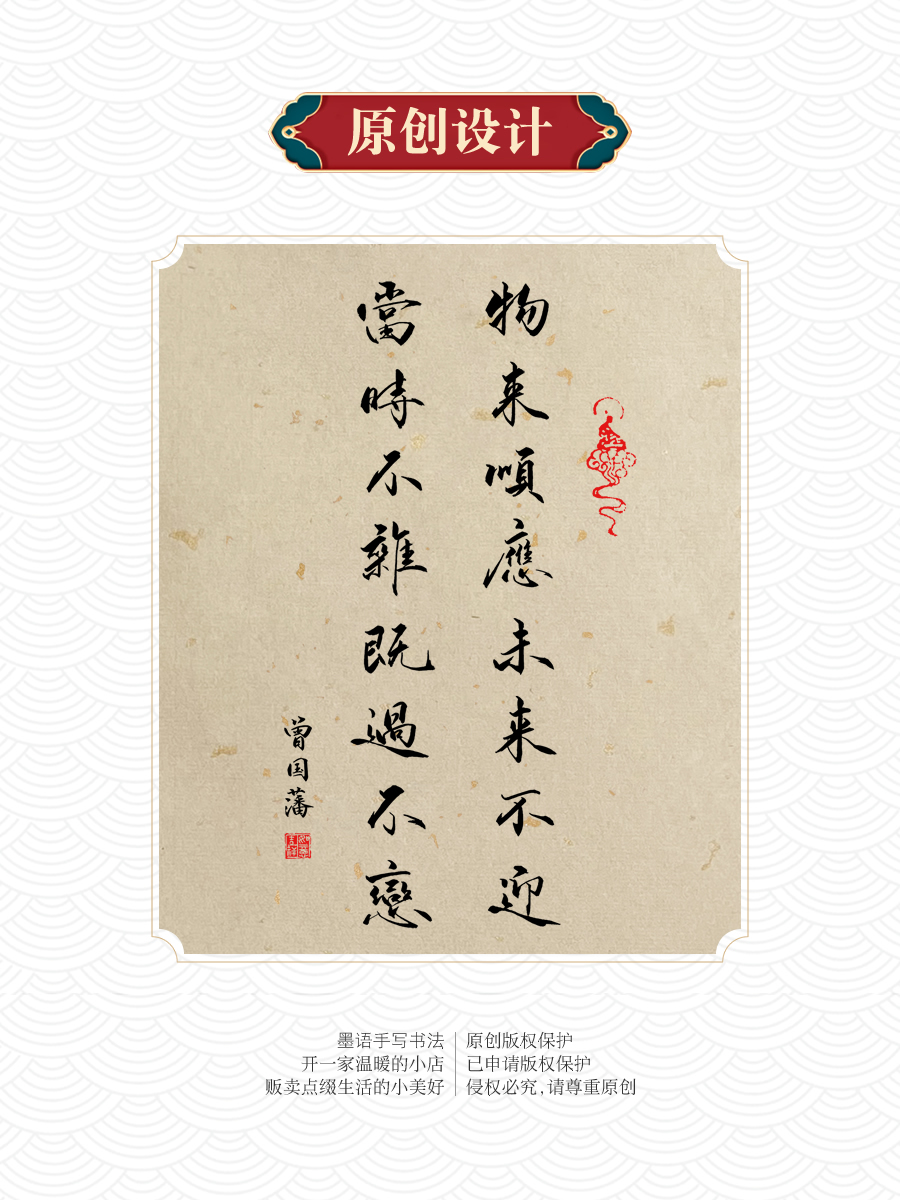 原创设计
物来順應未来不迎
當時不雜既過不戀
曾国藩
墨语手写书法
开一家温暖的小店
贩卖点缀生活的小美好
原创版权保护
已申请版权保护
侵权必究,请尊重原创